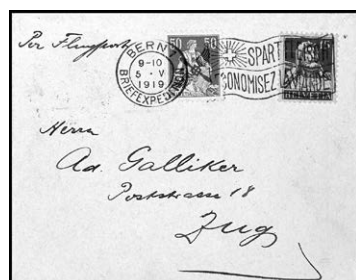 Per Flugpost
BERN
9-10
5 · V
1919
BRIEFEXPEDITION
50 50
SPART
ECONOMISEZ LA
HELVETIA
Herrn
Ad. Galliker
Poststrasse 18
Zug